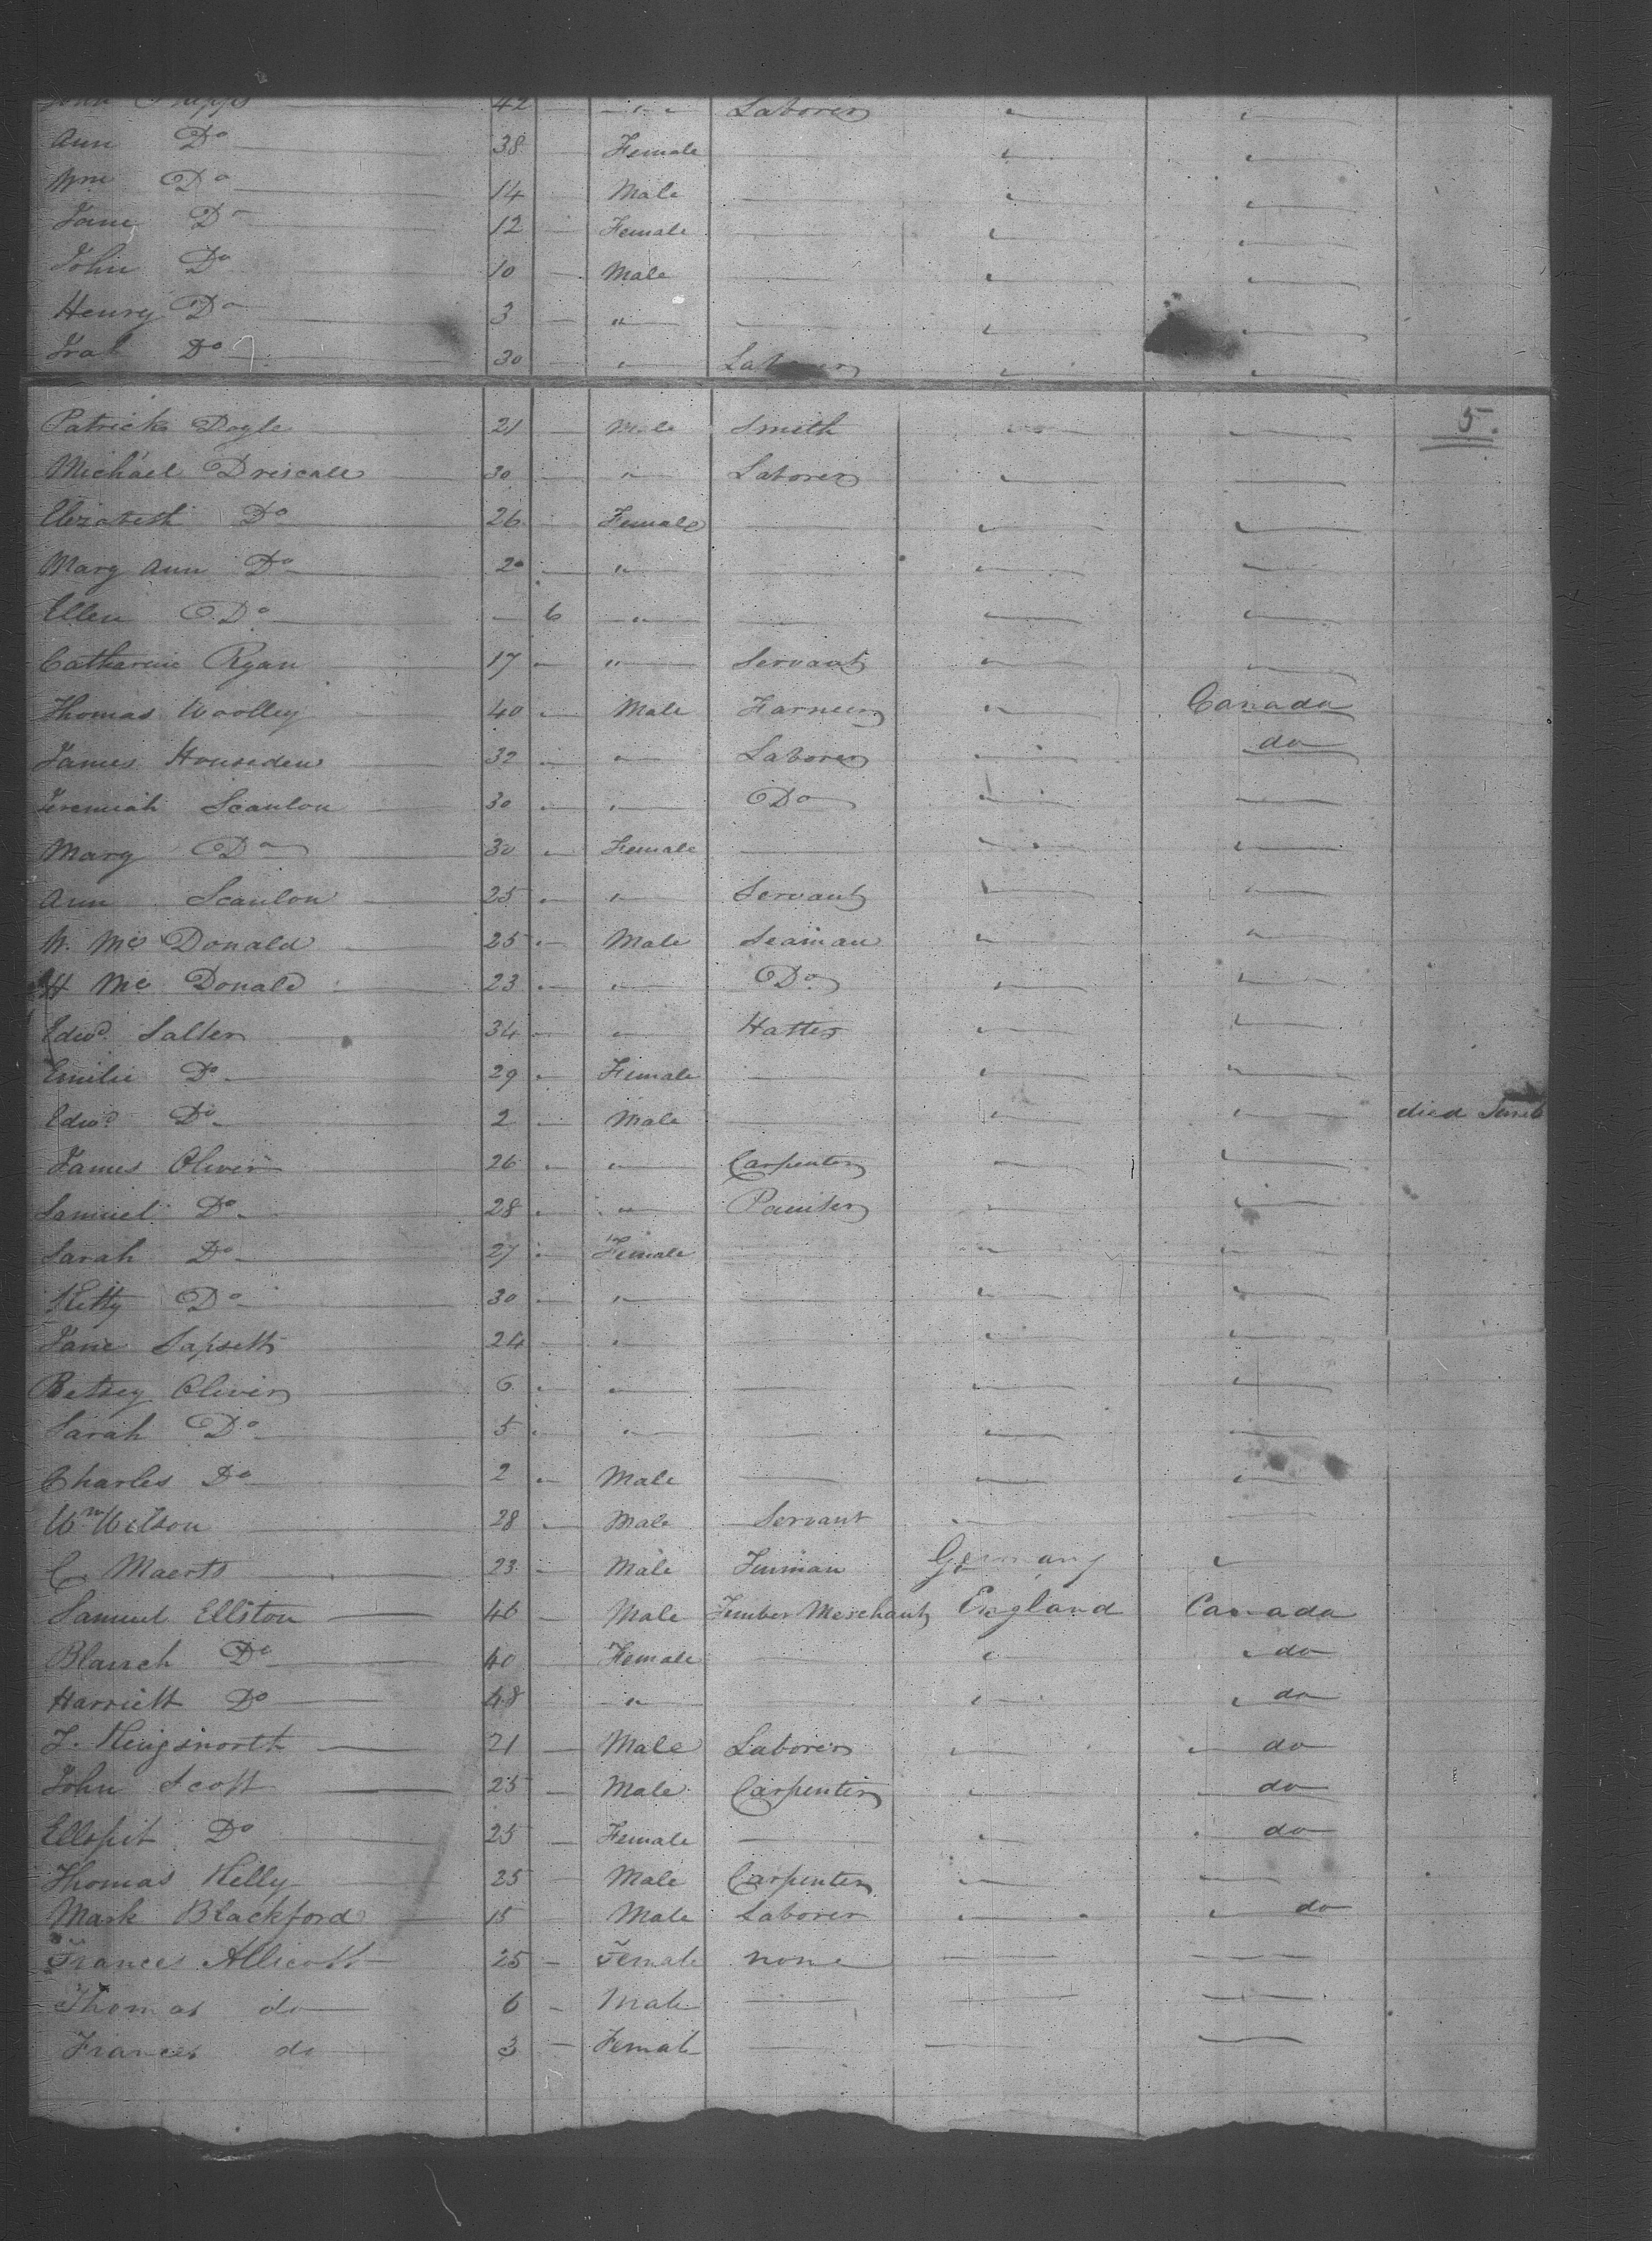 John 42 " Laborer
Ann Do 38 Female
Wm Do 14 Male
Jane Do 12 Female
John Do 10 Male
Henry Do 3 "
Do 30 " Laborer
Patrick Doyle 21 Male Smith 5.
Michael Driscale 30 " Laborer
Elizabeth Do 26 Female
Mary Ann Do 20 "
Ellen Do 6 "
Catharine Ryan 17 " Servant
Thomas Woolley 40 Male Farmer Canada
James Housden 32 " Laborer do
Jeremiah Scanlon 30 " Do
Mary Do 30 Female
Ann Scanlon 25 " Servant
Mc Donald 25 Male Seaman
H Mc Donald 23 " Do
Edwd Salter 34 " Hatter
Emilie Do 29 Female
Edwd Do 2 Male died
James Oliver 26 " Carpenter
Samuel Do 28 " Painter
Sarah Do 27 Female
Kitty Do 30 "
Jane 24 "
Betsey Oliver 6 "
Sarah Do 5 "
Charles Do 2 Male
Wm Wilson 28 Male Servant
C Maerts 23 Male Germany
Samuel Elliston 46 Male Timber Merchant England Canada
Blanch Do 40 Female " do
Harriett Do 48 " " do
J. Kingsnorth 21 Male Laborer " do
John Scott 25 Male Carpenter " do
Ellspit Do 25 Female " do
Thomas Kelly 25 Male Carpenter
Mark Blackford 15 Male Laborer " do
Frances Allicott 25 Female none
Thomas do 6 Male
Frances do 3 Female